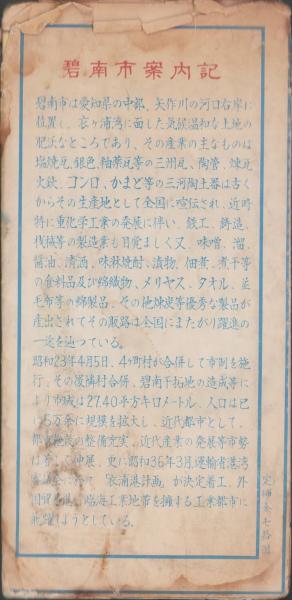 碧南市案内記
碧南市は愛知県の中部、矢作川の河口右岸に
位置し、衣ヶ浦湾に面した気候温和な土地の
肥沃なところであり、その産業の主なものは
塩焼瓦、銀色、釉薬瓦等の三州瓦、陶管、煉瓦
火鉢、コンロ、かまど等の三河陶土器は古く
からその生産地として全国に喧伝され、近時
特に重化学工業の発展に伴い、鉄工、鋳造、
機械等の製造業も目覚ましく又、味噌、溜、
醤油、清酒、味淋焼酎、漬物、佃煮、煮干等
の食料品及び綿織物、メリヤス、タオル、
毛布等の綿製品、その他煉炭等優秀な製品が
産出されてその販路は全国にまたがり躍進の
一途を辿っている。
昭和23年4月5日、4ヶ町村が合併して市制を施
行、その後隣村合併、碧南干拓地の造成等に
より市域は27.40平方キロメートル、人口は已
に5万余に規模を拡大し、近代都市として、
都市施設の整備充実、近代産業の発展等市勢
は 伸展、更に昭和36年3月、運輸省港湾
「衣浦港計画」が決定着工、外
国貿易港、臨海工業地帯を擁する工業都市に
飛躍しようとしている。